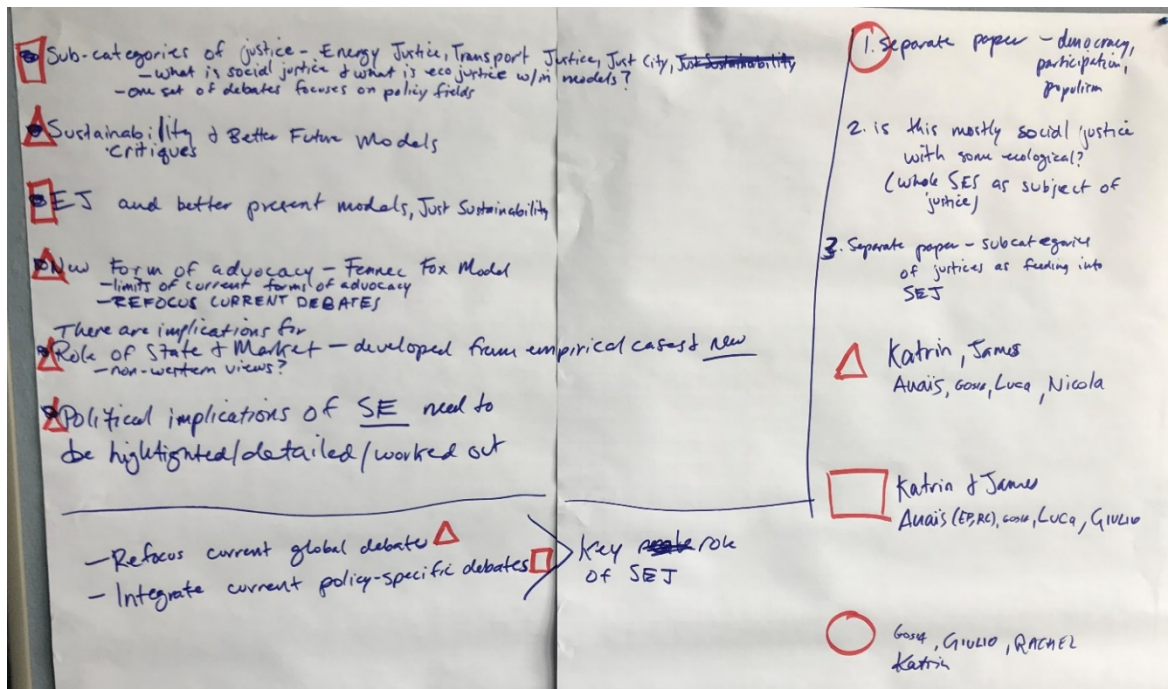 Sub-categories of justice - Energy Justice, Transport Justice, Just City, Just Sustainability
- what is social justice & what is eco justice w/in models?
- one set of debates focuses on policy fields
Sustainability & Better Future Models
critiques
EJ and better present models, Just Sustainability
New Form of advocacy - Fennec Fox Model
- limits of current forms of advocacy
- REFOCUS CURRENT DEBATES
There are implications for
Role of State & Market - developed from empirical cases & new
- non-western views?
Political implications of SE need to
be highlighted/detailed/worked out
- Refocus current global debate
- Integrate current policy-specific debates
Key role
of SEJ
1. Separate paper - democracy,
participation,
populism
2. is this mostly social justice
with some ecological?
(whole SES as subject of
justice)
3. Separate paper - subcategories
of justices as feeding into
SEJ
Katrin, James
Anaïs, Gosia, Luca, Nicola
Katrin & James
Anaïs (EP, RC), Gosia, Luca, GIULIO
Gosia, GIULIO, RACHEL
Katrin